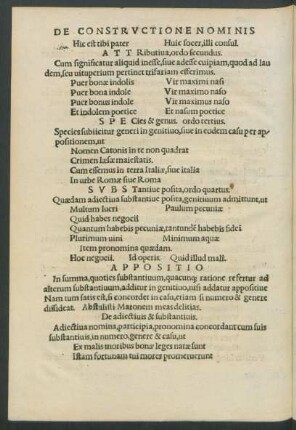 DE CONSTRVCTIONE NOMINIS
Hic est tibi pater Huic socer, illi consul.
ATTRibutiua, ordo secundus.
Cum significatur aliquid inesse, siue adesse cuipiam, quod ad lau
dem, seu uituperium pertinet trifariam efferimus.
Puer bonæ indolis Vir maximi nasi
Puer bona indole Vir maximo naso
Puer bonus indole Vir maximus naso
Et indolem poetice Et nasum poetice.
SPECies & genus. ordo tertius.
Species subiicitur generi in genitiuo, siue in eodem casu per ap
positionem, ut
Nomen Catonis in te non quadrat
Crimen læsæ maiestatis.
Cum essemus in terra Italiæ, siue italia
In urbe Romæ siue Roma
SVBSTantiue posita, ordo quartus.
Quædam adiectiua substantiue posita, genitiuum admittunt, ut
Multum lucri Paulum pecuniæ
Quid habet negocii
Quantum habebis pecuniæ, tantundē habebis fidei
Plurimum uini Minimum aquæ
Item pronomina quædam.
Hoc negocii. Id operis. Quid illud mali.
APPOSITIO
In summa, quoties substantiuum, quacunq; ratione refertur ad
alterum substantiuum, additur in genitiuo, nisi addatur appositiue
Nam tum satis est, si concordet in casu, etiam si numero & genere
dissideat. Abstulisti Maronem meas delitias.
De adiectiuis & substantiuis.
Adiectiua nomina, participia, pronomina concordant cum suis
substantiuis, in numero, genere & casu, ut
Ex malis moribus bonæ leges natæ sunt
Istam fortunam tui mores promeruerunt